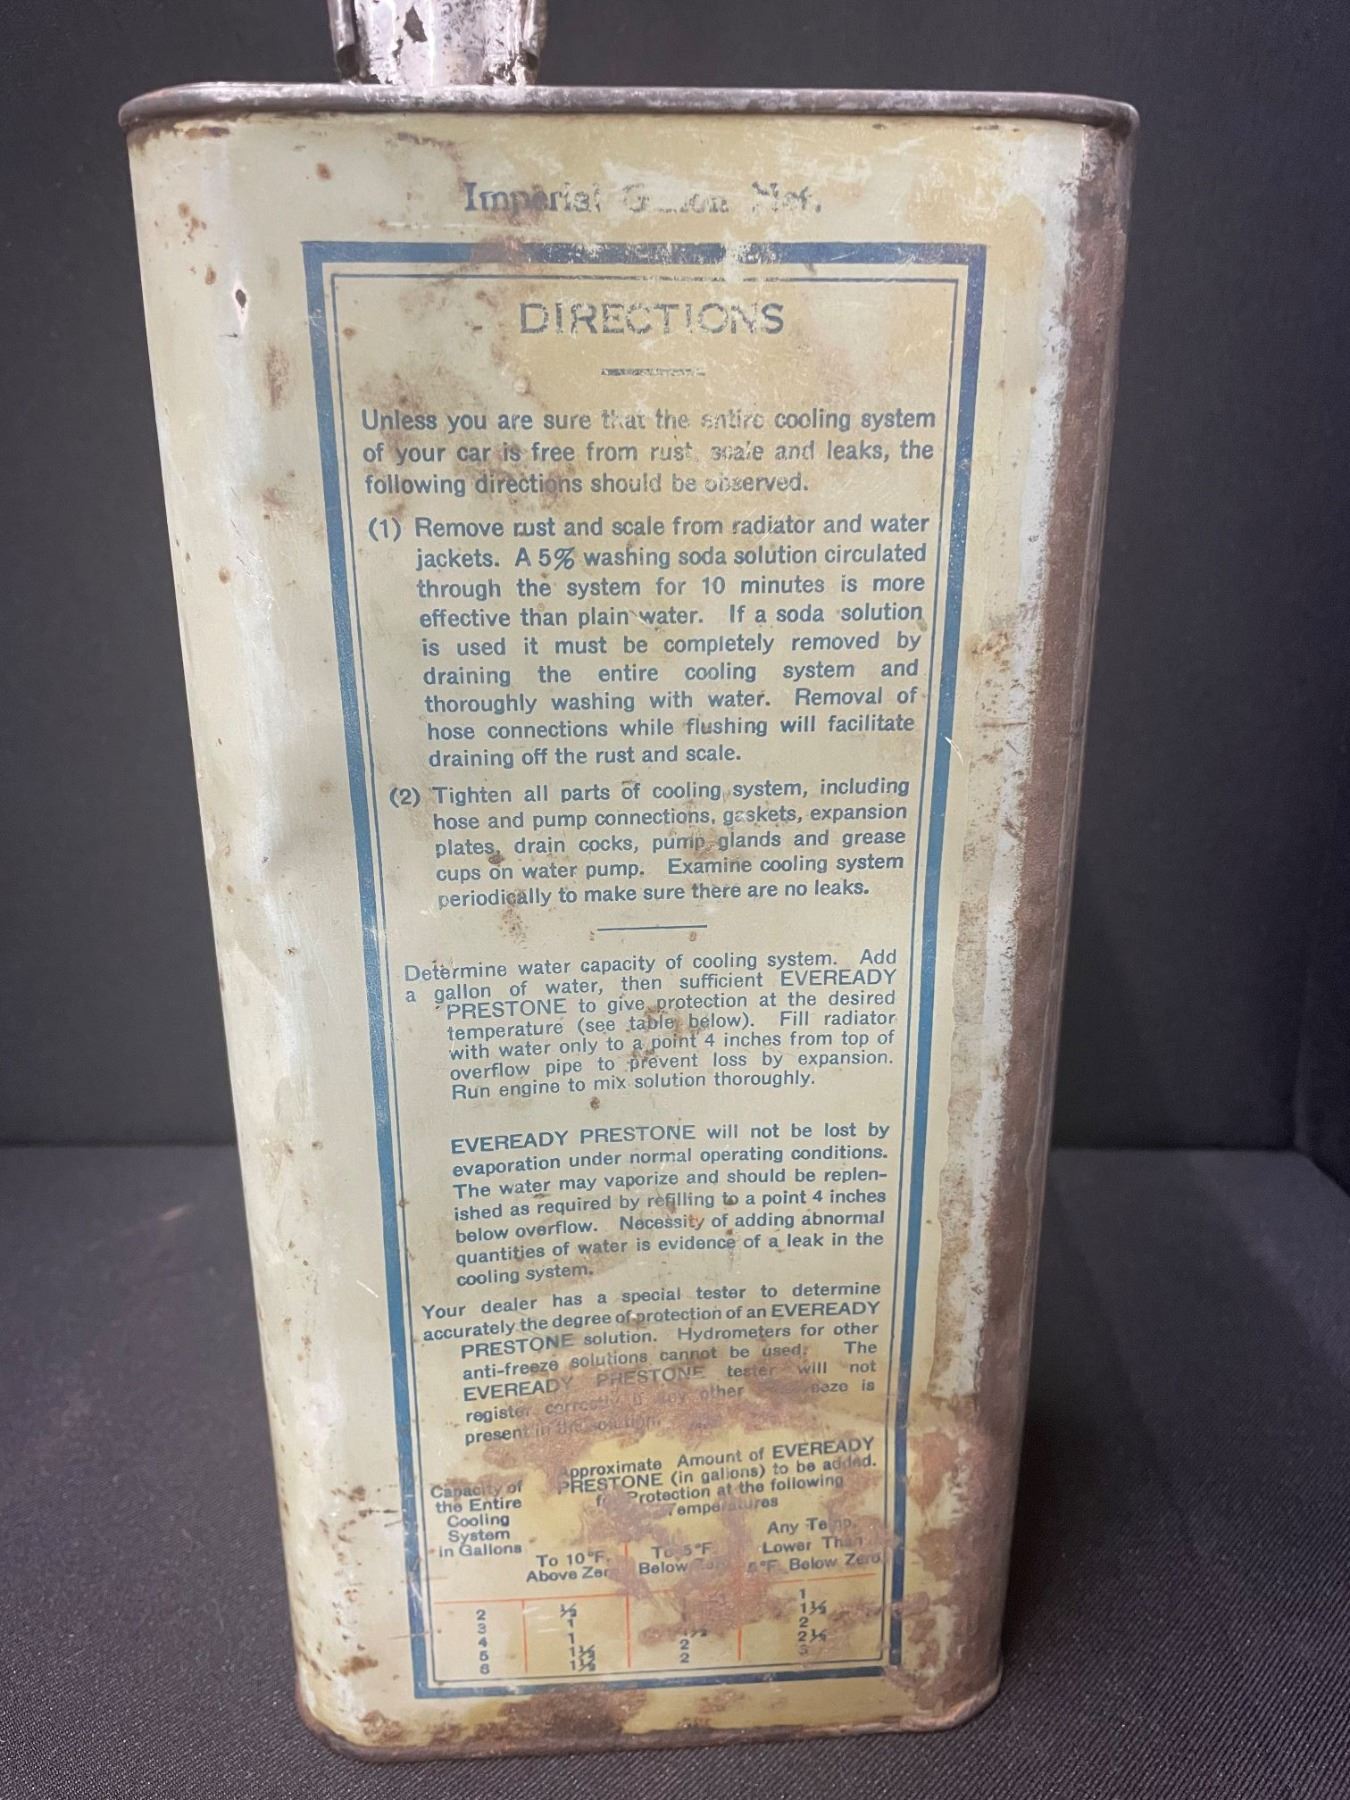 Imperial Net.
DIRECTIONS
Unless you are sure that the entire cooling system
of your car is free from rust, scale and leaks, the
following directions should be observed.
(1) Remove rust and scale from radiator and water
jackets. A 5% washing soda solution circulated
through the system for 10 minutes is more
effective than plain water. If a soda solution
is used it must be completely removed by
draining the entire cooling system and
thoroughly washing with water. Removal of
hose connections while flushing will facilitate
draining off the rust and scale.
(2) Tighten all parts of cooling system, including
hose and pump connections, gaskets, expansion
plates, drain cocks, pump glands and grease
cups on water pump. Examine cooling system
periodically to make sure there are no leaks.
Determine water capacity of cooling system. Add
a gallon of water, then sufficient EVEREADY
PRESTONE to give protection at the desired
temperature (see table below). Fill radiator
with water only to a point 4 inches from top of
overflow pipe to prevent loss by expansion.
Run engine to mix solution thoroughly.
EVEREADY PRESTONE will not be lost by
evaporation under normal operating conditions.
The water may vaporize and should be replen-
ished as required by refilling to a point 4 inches
below overflow. Necessity of adding abnormal
quantities of water is evidence of a leak in the
cooling system.
Your dealer has a special tester to determine
accurately the degree of protection of an EVEREADY
PRESTONE solution. Hydrometers for other
anti-freeze solutions cannot be used. The
EVEREADY PRESTONE tester will not
register correctly if any other is
present in the solution.
Approximate Amount of EVEREADY
PRESTONE (in gallons) to be added.
Protection at the following
Temperatures
Capacity of
the Entire
Cooling
System
in Gallons
To 10°F.
Above Zero
To 5°F.
Below
Any Temp.
Lower Than
5°F. Below Zero
2 ½ 1
3 1 1½
4 1 2
5 1½ 2 2½
6 1½ 2 3